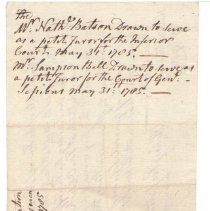 the
Mr. Nathl. Batson Drawn to serve
as a petit Juror for the Inferior
Court. may 31st 1785. —
Mr. Sampson Bell Drawn to serve as
a petit Juror for the Court of Genl. -
Sessions may 31st. 1785. —
1785